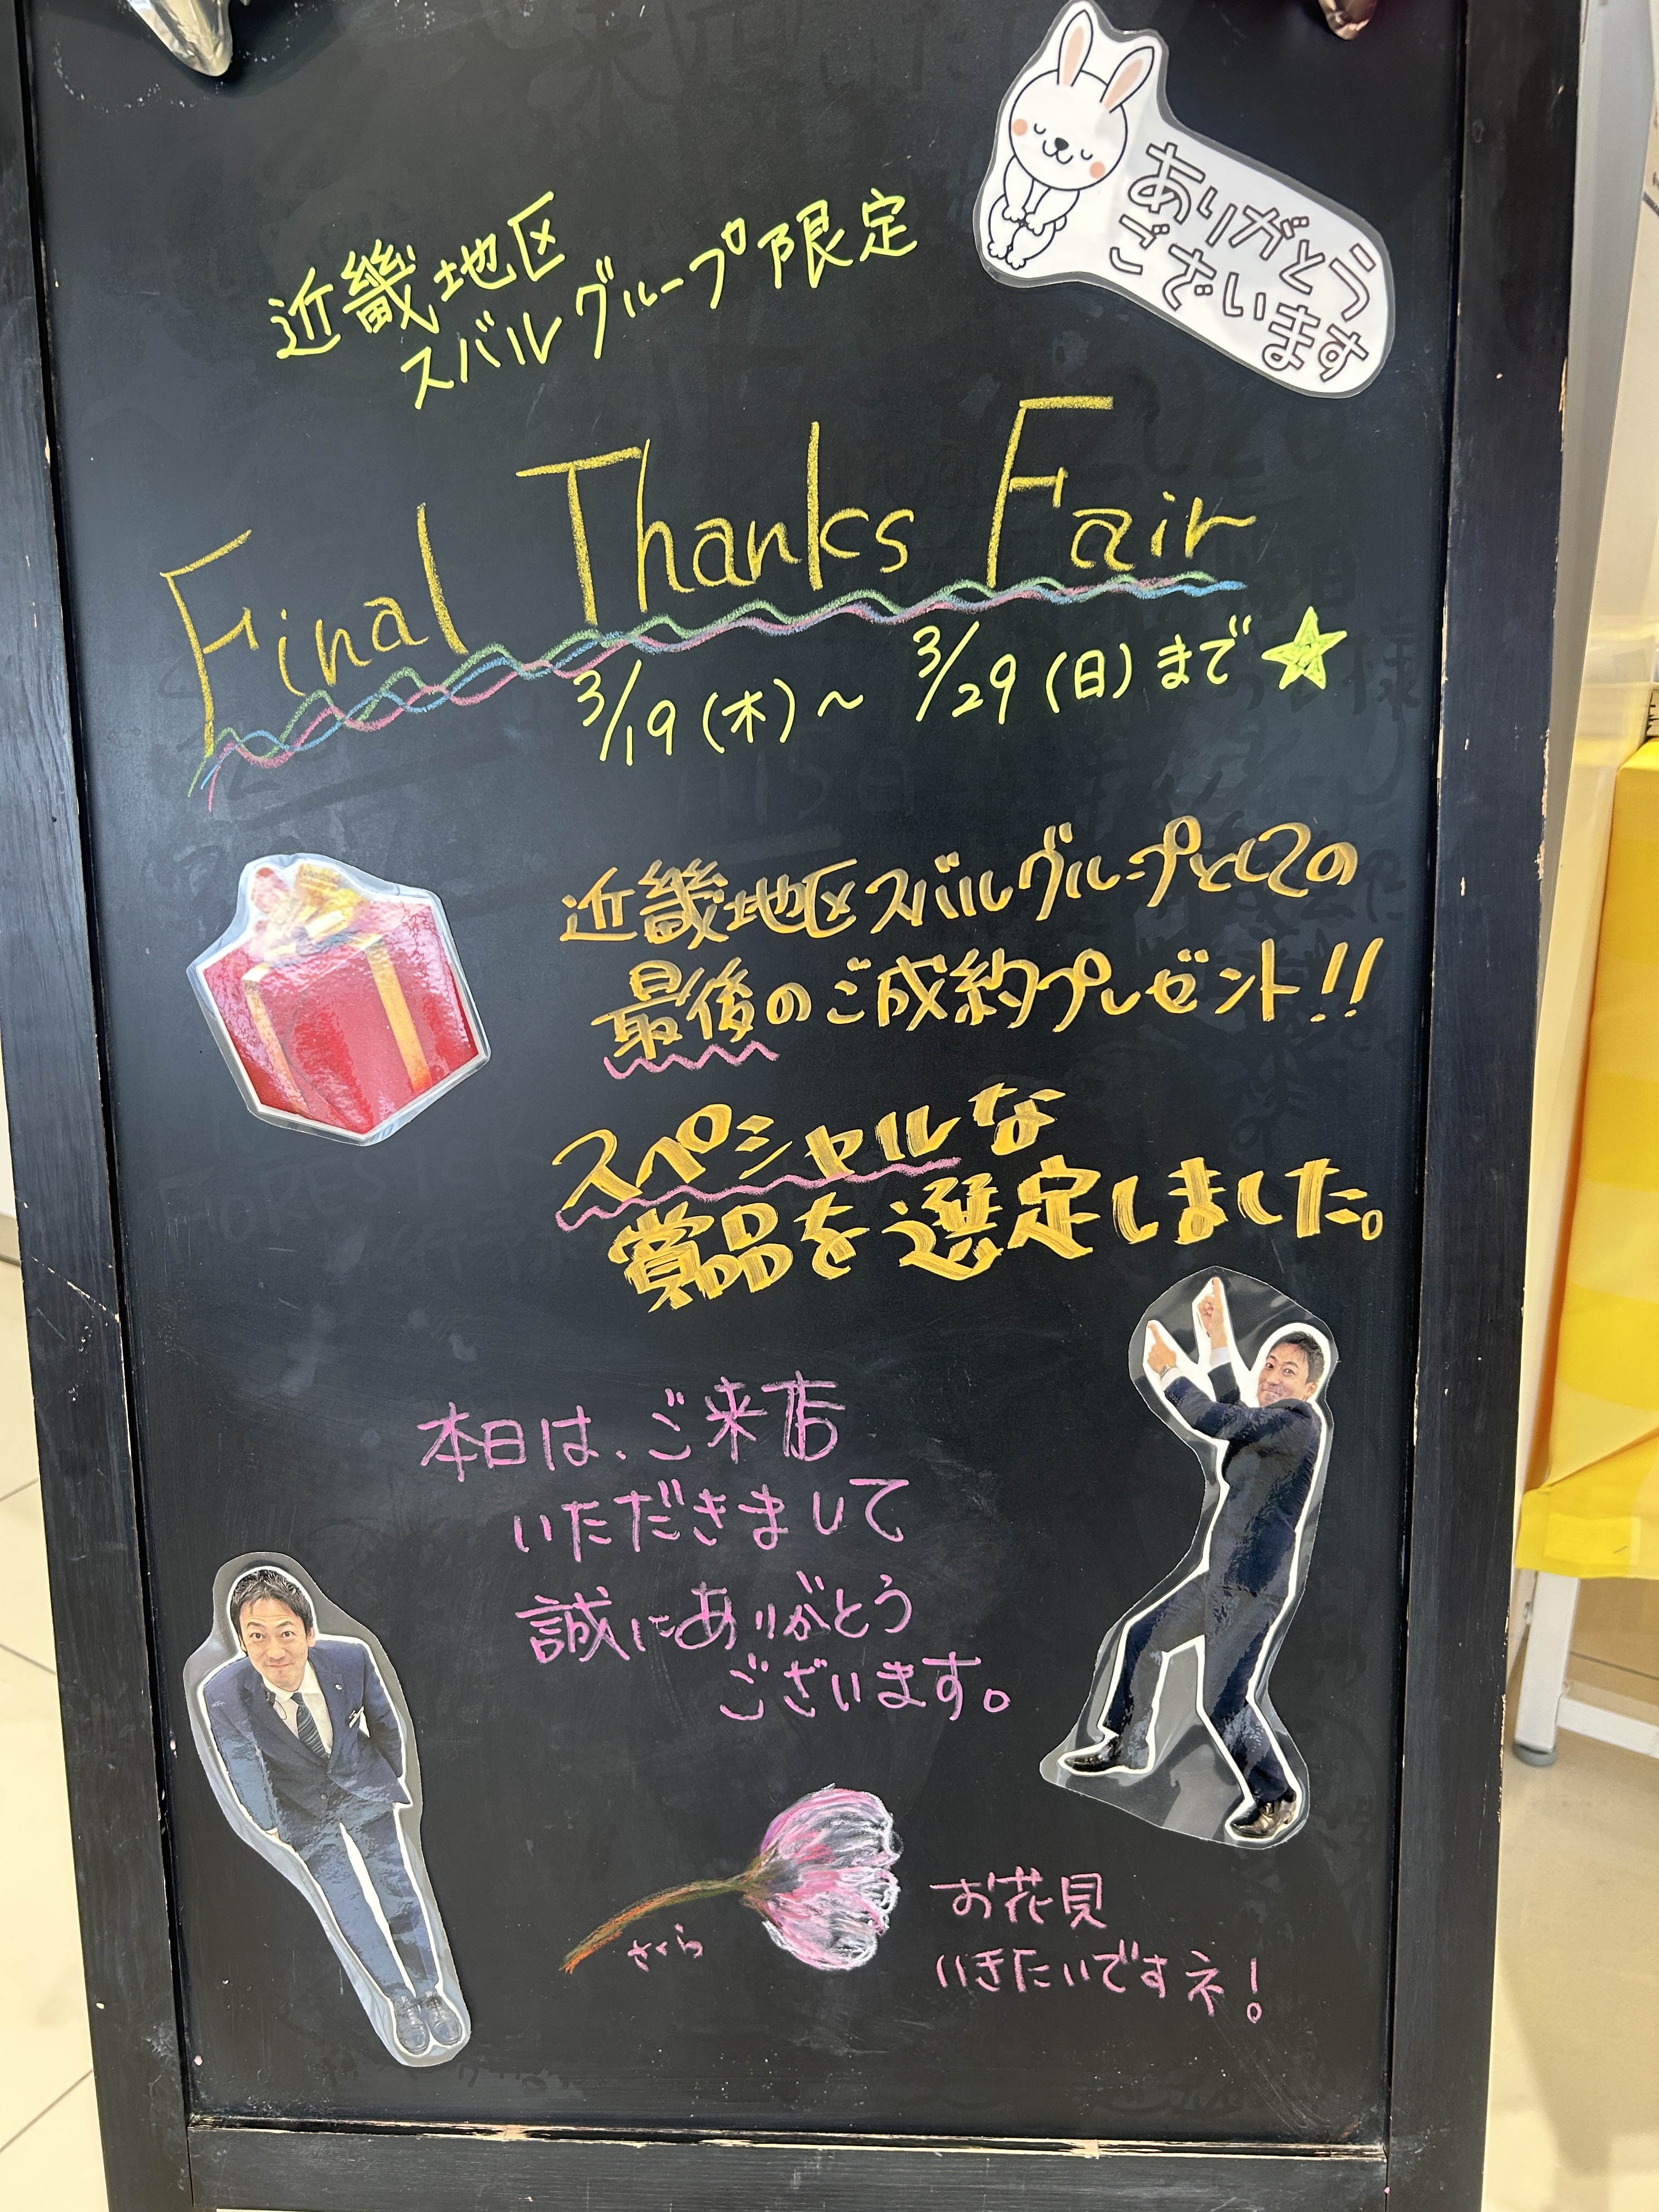 ありがとう
ございます
近畿地区
スバルグループ限定
Final Thanks Fair
3/19(木)～ 3/29(日)まで★
近畿地区スバルグループとしての
最後のご成約プレゼント!!
スペシャルな
賞品を選定しました。
本日は、ご来店
いただきまして
誠にありがとう
ございます。
さくら
お花見
いきたいですネ!